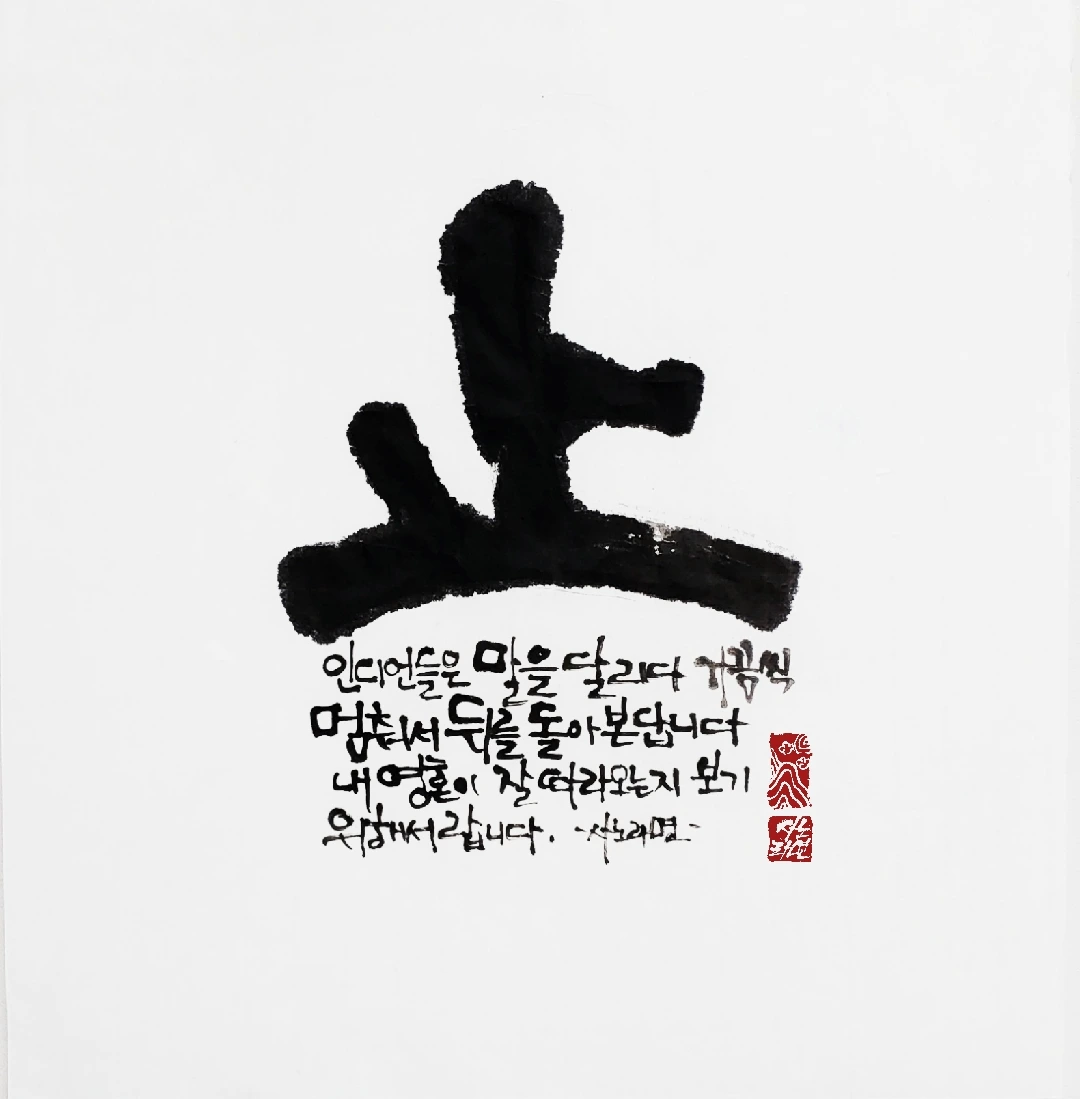 止
인디언들은 말을 달리다 가끔씩
멈춰서 뒤를 돌아본답니다
내 영혼이 잘 따라오는지 보기
위해서랍니다.